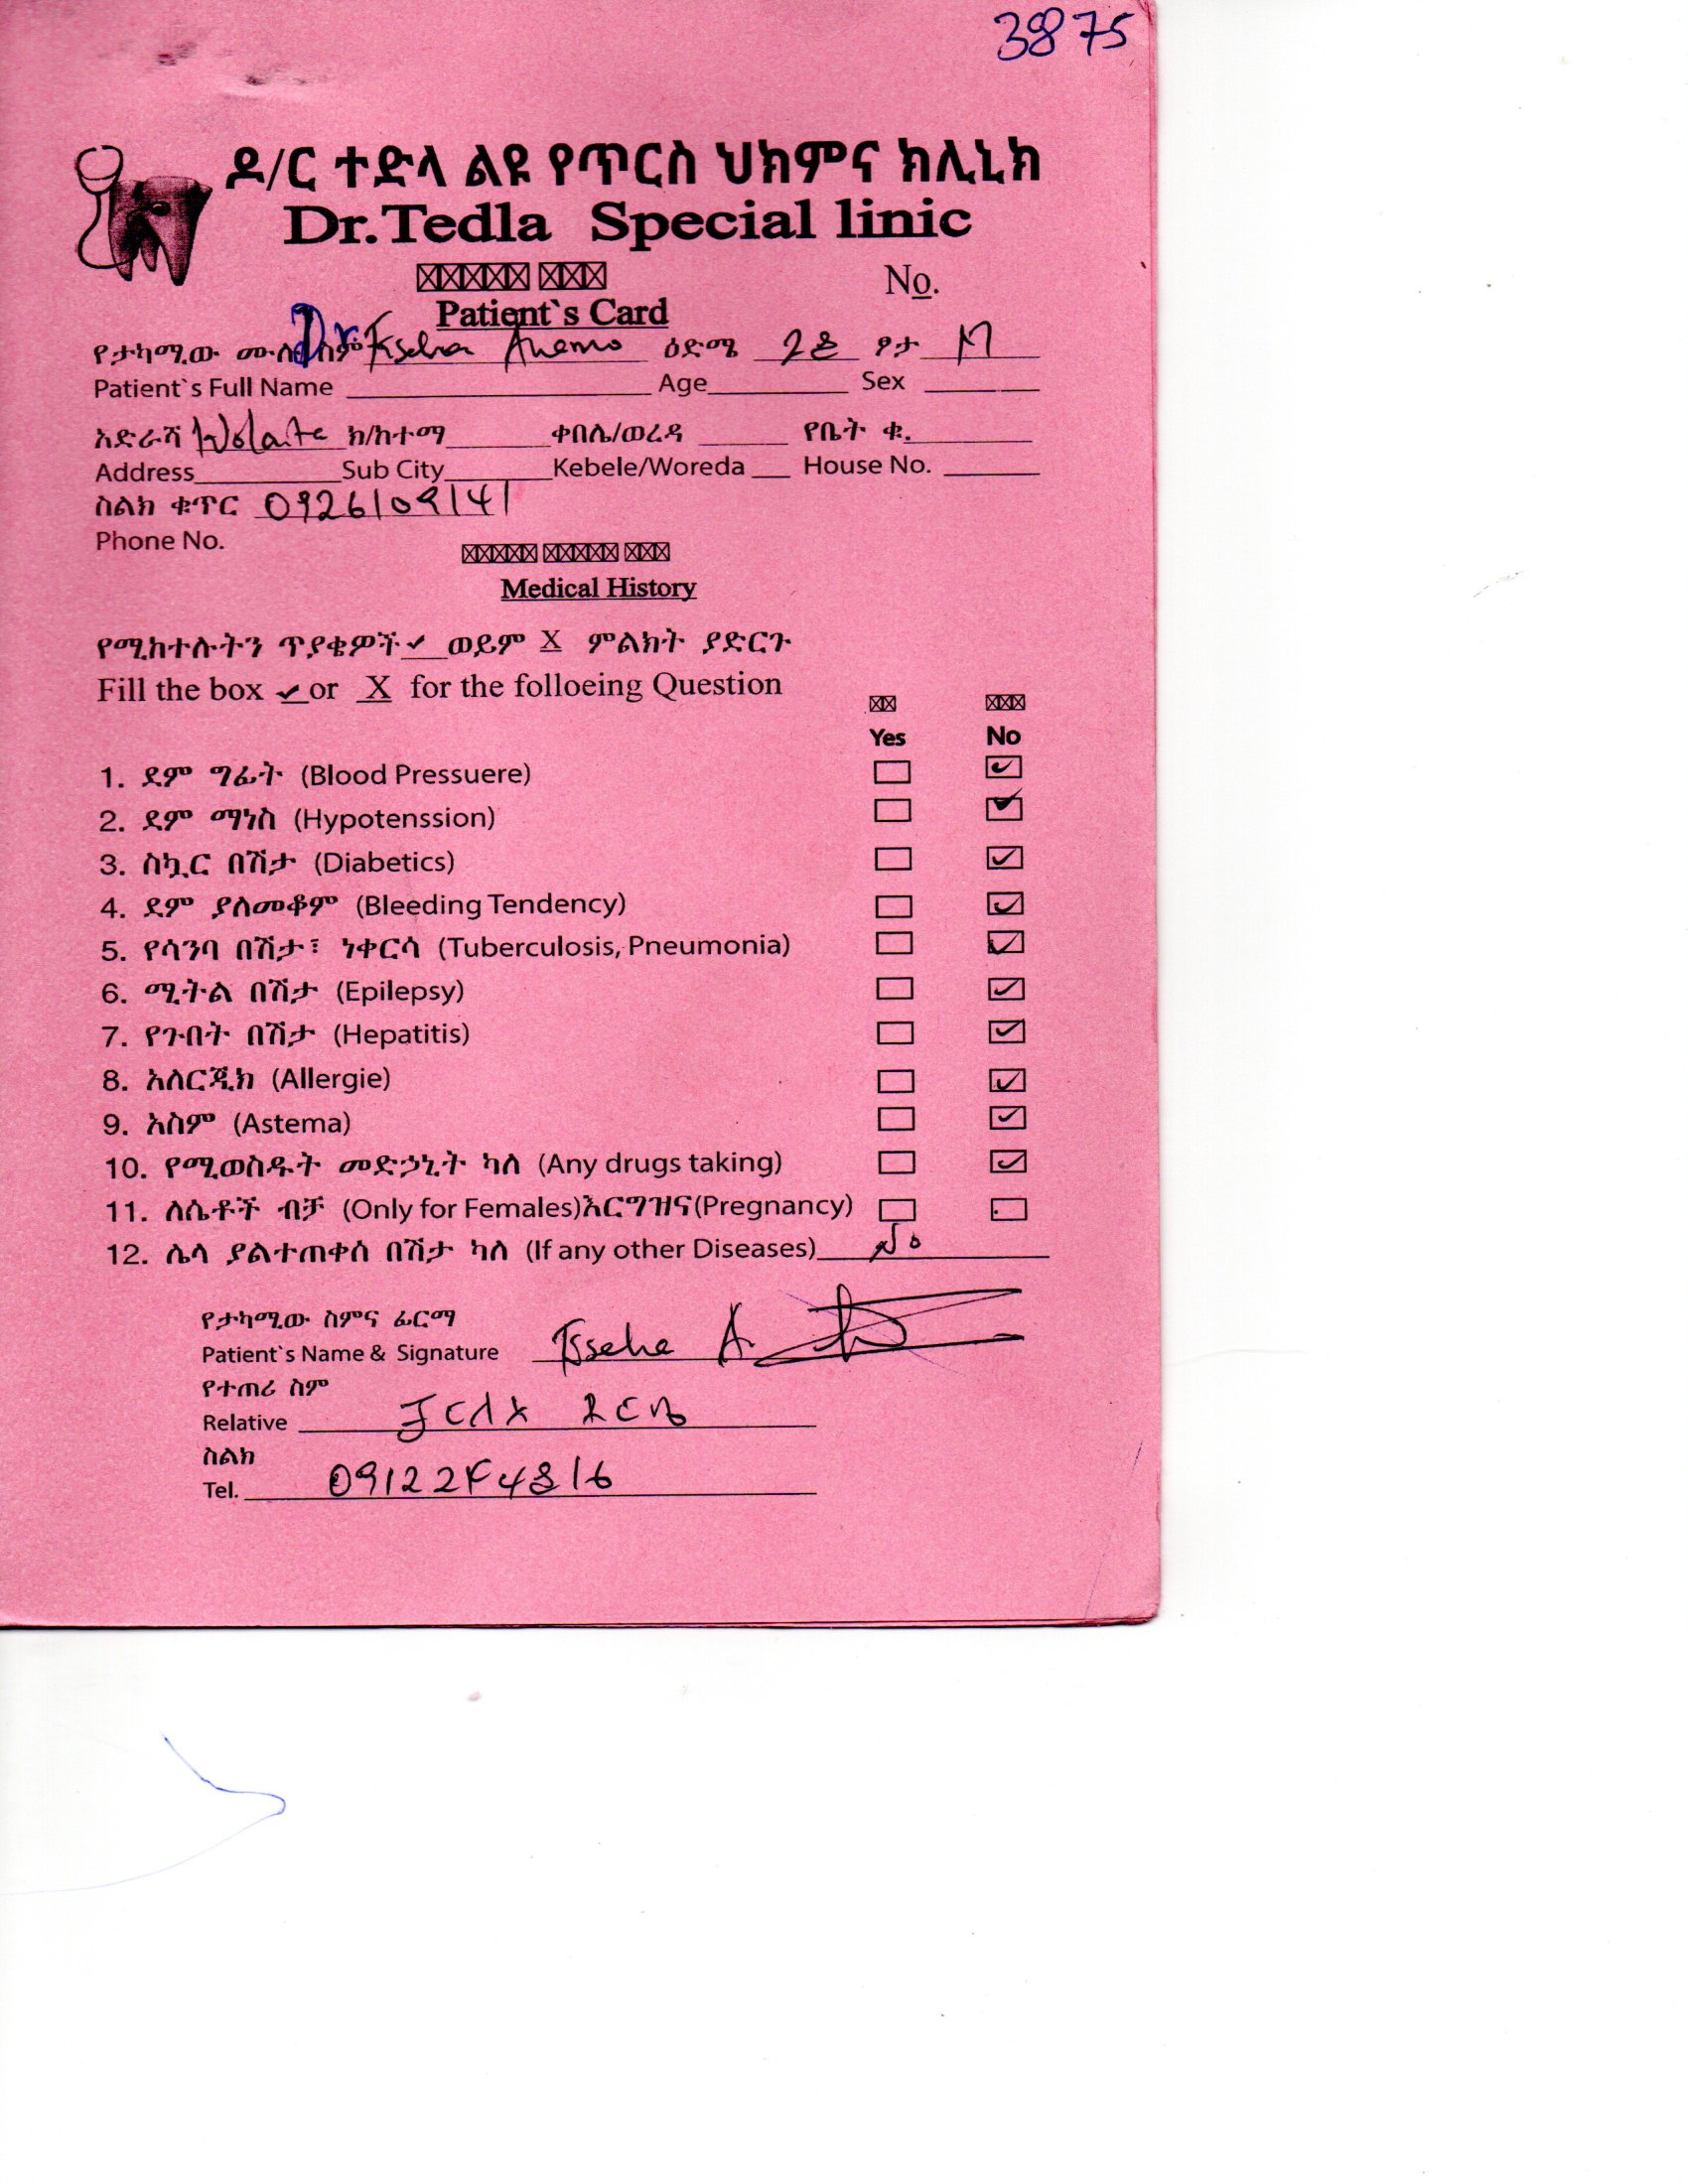 3875
ዶ/ር ተድላ ልዩ የጥርስ ህክምና ክሊኒክ
Dr.Tedla Special linic
No.
Patient`s Card
የታካሚው ሙሉ ስም Dr. Anemo ዕድሜ 28 ፆታ M
Patient`s Full Name Age Sex
አድራሻ Wolaita ክ/ከተማ ቀበሌ/ወረዳ የቤት ቁ.
Address Sub City Kebele/Woreda House No.
ስልክ ቁጥር 0926109141
Phone No.
Medical History
የሚከተሉትን ጥያቄዎች ✓ ወይም X ምልክት ያድርጉ
Fill the box ✓ or X for the folloeing Question
Yes No
1. ደም ግፊት (Blood Pressuere)
2. ደም ማነስ (Hypotenssion)
3. ስኳር በሽታ (Diabetics)
4. ደም ያለመቆም (Bleeding Tendency)
5. የሳንባ በሽታ፣ ነቀርሳ (Tuberculosis, Pneumonia)
6. ሚትል በሽታ (Epilepsy)
7. የጉበት በሽታ (Hepatitis)
8. አለርጂክ (Allergie)
9. አስም (Astema)
10. የሚወስዱት መድኃኒት ካለ (Any drugs taking)
11. ለሴቶች ብቻ (Only for Females)እርግዝና(Pregnancy)
12. ሌላ ያልተጠቀሰ በሽታ ካለ (If any other Diseases) No
የታካሚው ስምና ፊርማ
Patient`s Name & Signature A.
የተጠሪ ስም
Relative
ስልክ
Tel.